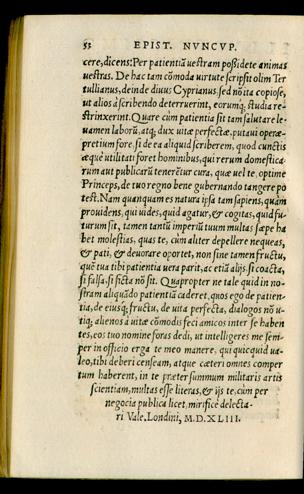 53 EPIST. NVNCVP.
cere, dicens: Per patientiā uestram poßidete animas
uestras. De hac tam cōmoda uirtute scripsit olim Ter
tullianus, deinde diuus Cyprianus. sed nō ita copiose,
ut alios à scribendo deterruerint, eorumq; studia re=
strinxerint. Quare cùm patientia sit tam salutare le=
uamen laborū, atq; dux uitæ perfectæ, putaui operæ=
pretium fore, si de ea aliquid scriberem, quod cunctis
æquè utilitati foret hominibus, qui rerum domestica=
rum aut publicarū tenerētur cura, quæ uel te, optime
Princeps, de tuo regno bene gubernando tangere po
test. Nam quanquam es natura ipsa tam sapiens, quàm
prouidens, qui uides, quid agatur, & cogitas, quid fu=
turum sit, tamen tantū imperiū tuum multas sæpe ha
bet molestias, quas te, cùm aliter depellere nequeas,
& pati, & deuorare oportet, non sine tamen fructu,
quē tua tibi patientia uera parit, ac etiā alijs. si coacta,
si falsa, si ficta nō sit. Quapropter ne tale quid in no=
stram aliquādo patientiā caderet, quos ego de patien=
tia, de eiusq; fructu, de uita perfecta, dialogos nō u=
tiq; alienos à uitæ cōmodis feci amicos inter se haben
tes, eos tuo nomine foras dedi, ut intelligeres me sem=
per in officio erga te meo manere, qui quicquid ua=
leo, tibi deberi censeam, atque cæteri omnes comper
tum haberent, in te præter summum militaris artis
scientiam, multas esse literas, & ijs te, cùm per
negocia publica licet, mirificè delecta=
ri Vale. Londini, M.D.XLIII.